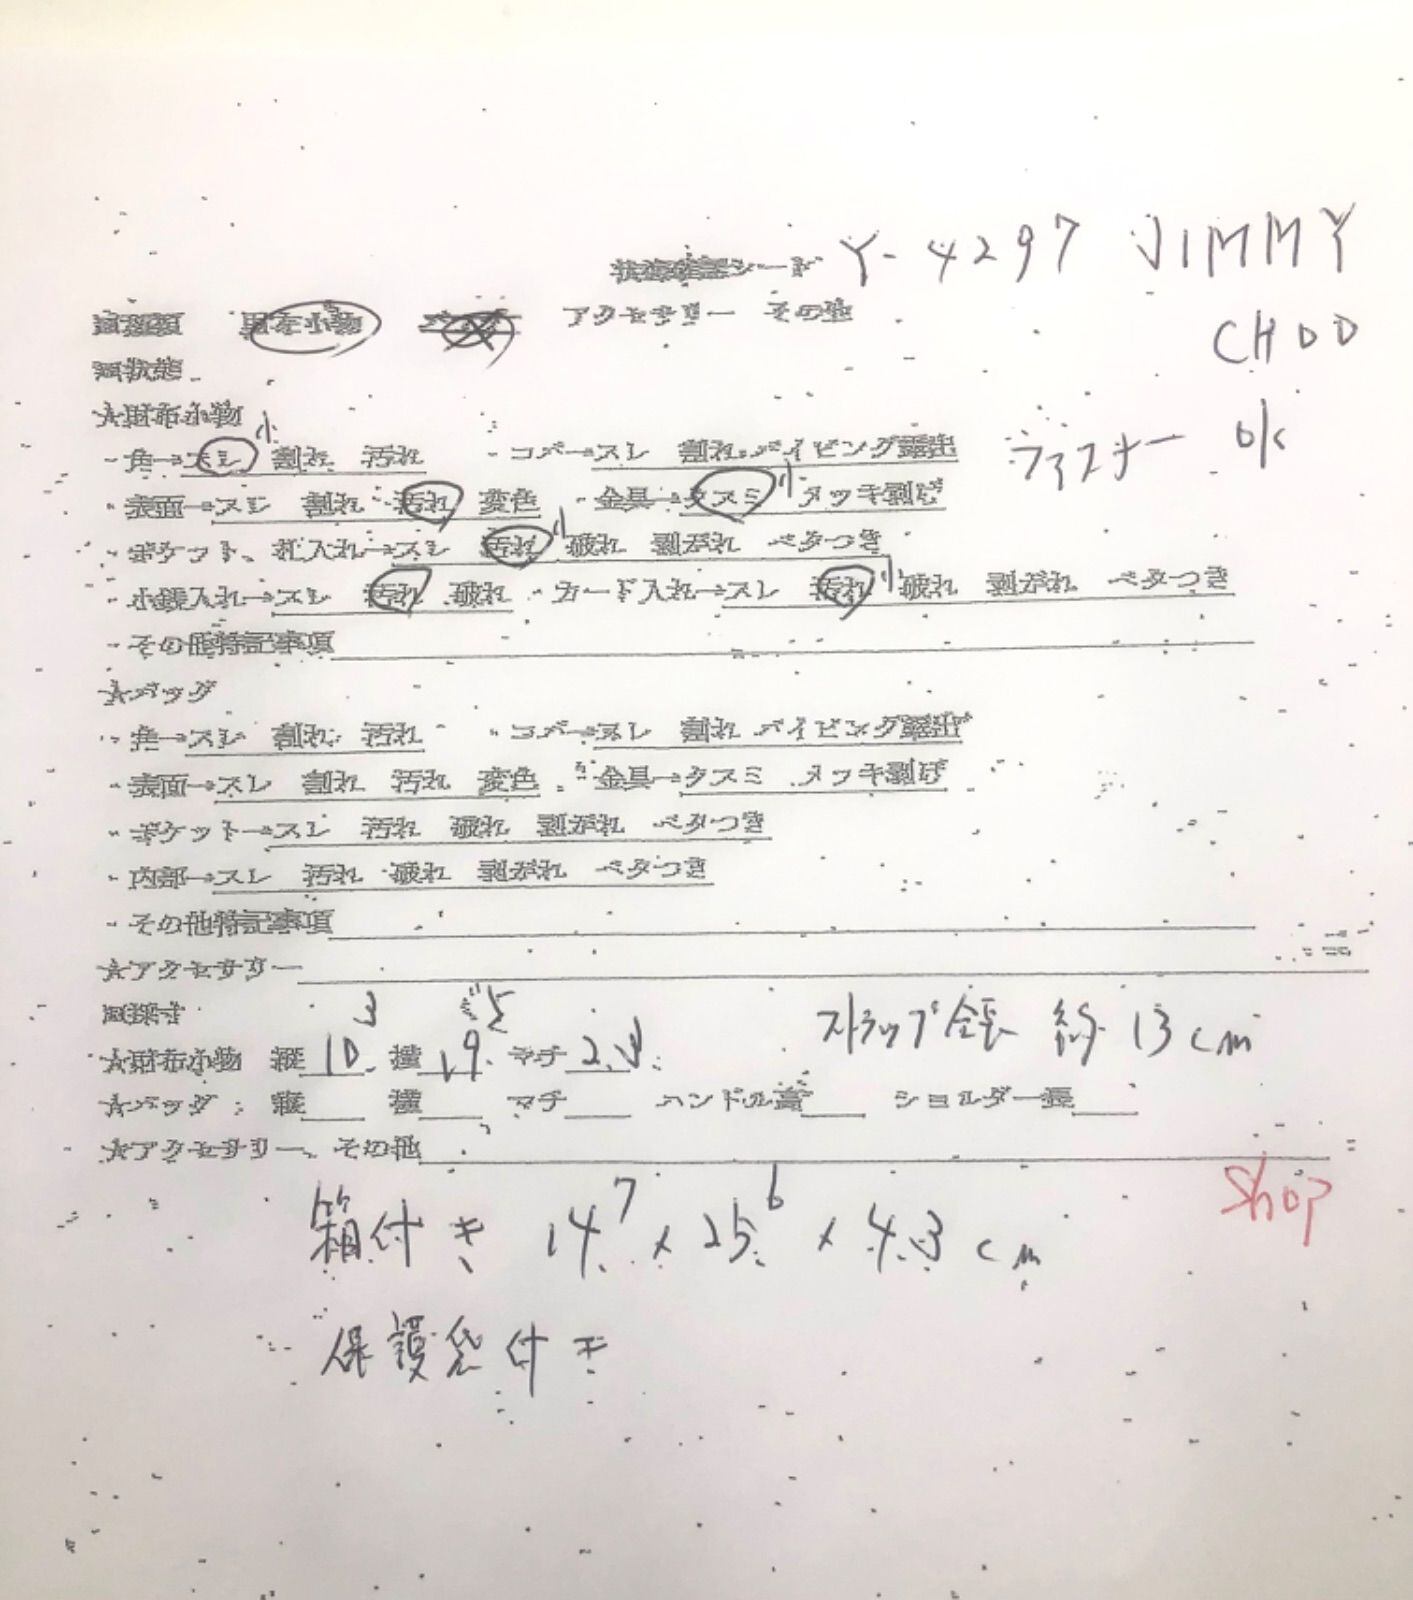 状態確認シート Y-4297 JIMMY
CHOO
■種類 財布小物 アクセサリー その他
■状態
★財布小物
・角→スレ 小 割れ 汚れ ・コバ→スレ 割れ パイピング露出 ファスナー OK
・表面→スレ 割れ 汚れ 変色 ・金具→クスミ 小 メッキ剥げ
・ポケット、札入れ→スレ 汚れ 小 破れ 剥がれ ベタつき
・小銭入れ→スレ 汚れ 破れ ・カード入れ→スレ 汚れ 小 破れ 剥がれ ベタつき
・その他特記事項
★バッグ
・角→スレ 割れ 汚れ ・コバ→スレ 割れ パイピング露出
・表面→スレ 割れ 汚れ 変色 ・金具→クスミ メッキ剥げ
・ポケット→スレ 汚れ 破れ 剥がれ ベタつき
・内部→スレ 汚れ 破れ 剥がれ ベタつき
・その他特記事項
★アクセサリー
■採寸
★財布小物 縦 10.3 横 19.5 マチ 2.3 ストラップ全長 約 13cm
★バッグ 縦 横 マチ ハンドル高 ショルダー長
★アクセサリー、その他
Shop
箱付き 14.7 x 25.6 x 4.3 cm
保護袋付き